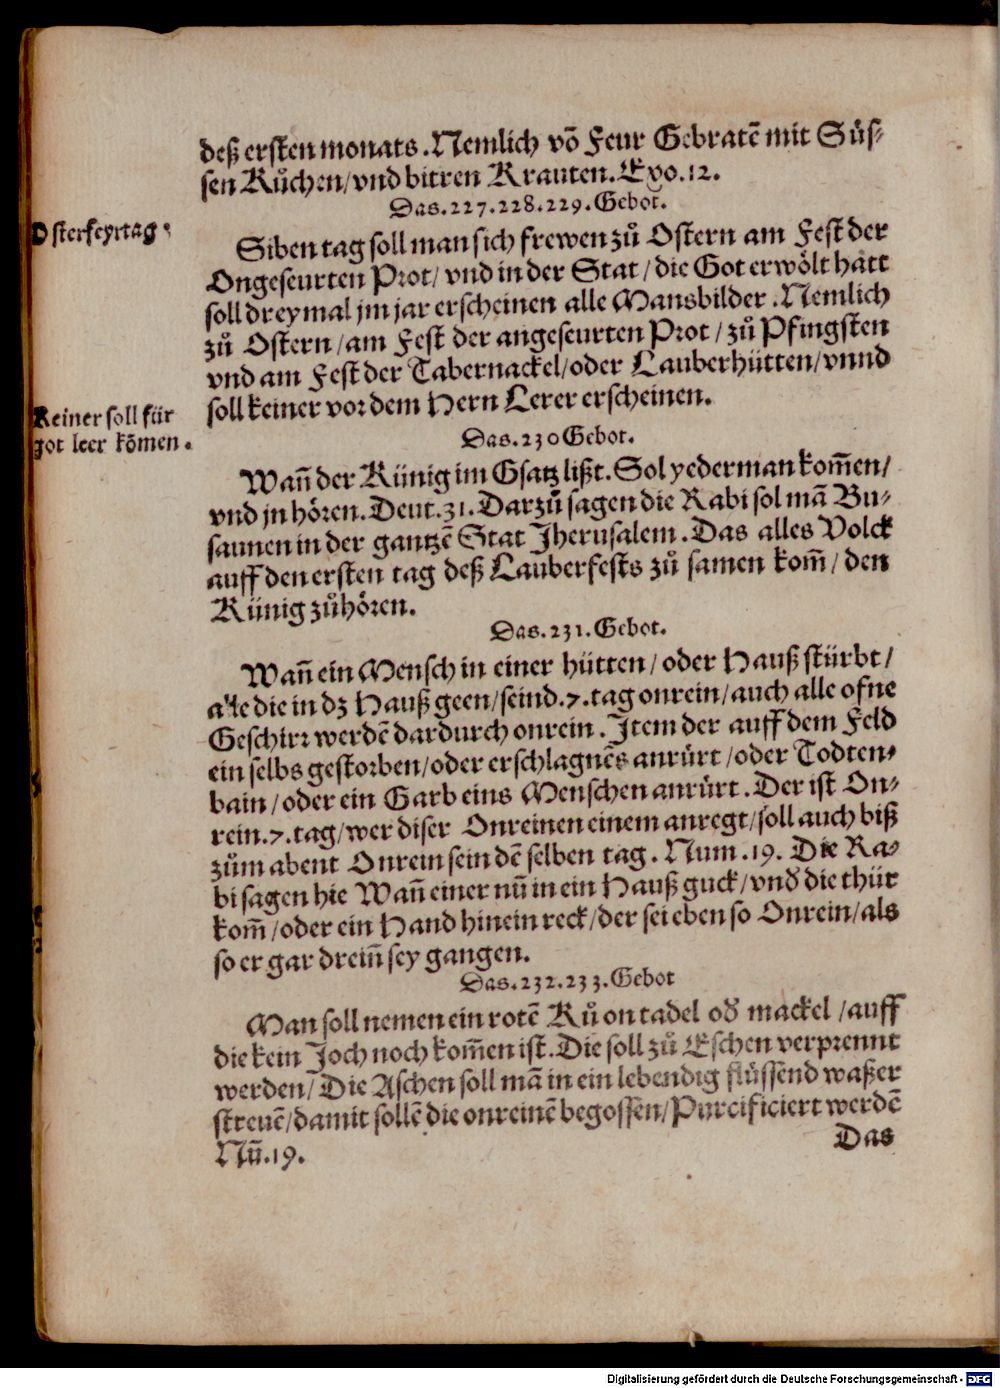 deß ersten monats. Nemlich võ Feur Gebratẽ mit Süs-
sen Kůchen/vnd bitren Krauten. Exo. 12.
Das. 227. 228. 229. Gebot.
Osterfeyrtag
Siben tag soll man sich frewen zů Ostern am Fest der
Ongeseurten Prot/ vnd in der Stat/die Got erwölt hatt
soll dreymal jm jar erscheinen alle Mansbilder. Nemlich
zů Ostern/am Fest der angeseurten Prot/ zů Pfingsten
vnd am Fest der Tabernackel/oder Lauberhütten/vnnd
soll keiner vor dem Hern Lerer erscheinen.
Keiner soll für
got leer kõmen.
Das. 230 Gebot.
Wañ der Künig im Gsatz lißt. Sol yederman kom̃en/
vnd jn hören. Deut. 31. Darzů sagen die Rabi sol mã Bu-
saunen in der gantzẽ Stat Jherusalem. Das alles Volck
auff den ersten tag deß Lauberfests zů samen kom̃/ den
Künig zůhören.
Das. 231. Gebot.
Wañ ein Mensch in einer hütten/ oder Hauß stürbt/
alle die in dz Hauß geen/seind. 7. tag onrein/auch alle ofne
Geschirr werdẽ dardurch onrein. Item der auff dem Feld
ein selbs gestorben/oder erschlagnẽs anrürt/oder Todten-
bain/oder ein Garb eins Menschen anrürt. Der ist On-
rein. 7. tag/wer diser Onreinen einem anregt/soll auch biß
zům abent Onrein sein dẽ selben tag. Num. 19. Die Ra-
bi sagen hie Wañ einer nũ in ein Hauß guck/vnd die thür
kom̃/oder ein Hand hinein reck/der sei eben so Onrein/als
so er gar dreiñ sey gangen.
Das. 232. 233. Gebot
Man soll nemen ein rotẽ Ků on tadel od mackel/auff
die kein Joch noch kom̃en ist. Die soll zů Eschen verprennt
werden/ Die Aschen soll mã in ein lebendig flüssend waßer
streuẽ/damit sollẽ die onreinẽ begossen/Pureificiert werdẽ
Nũ. 19.
Das
Digitalisierung gefördert durch die Deutsche Forschungsgemeinschaft - DFG